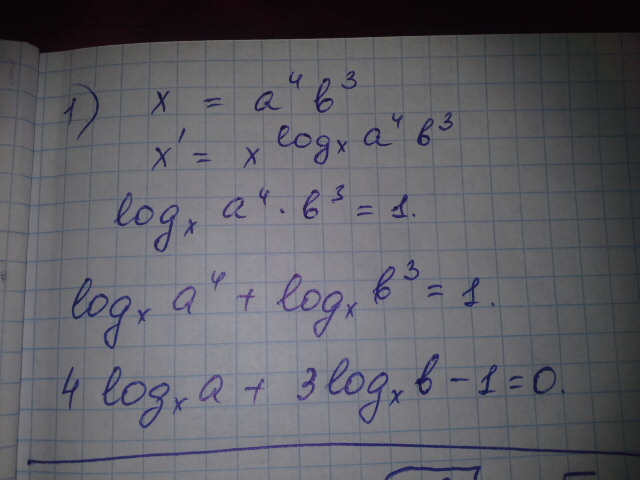 1) x = a⁴ b³
x¹ = x^(logₓ a⁴ b³)
logₓ a⁴ · b³ = 1.
logₓ a⁴ + logₓ b³ = 1.
4 logₓ a + 3 logₓ b − 1 = 0.